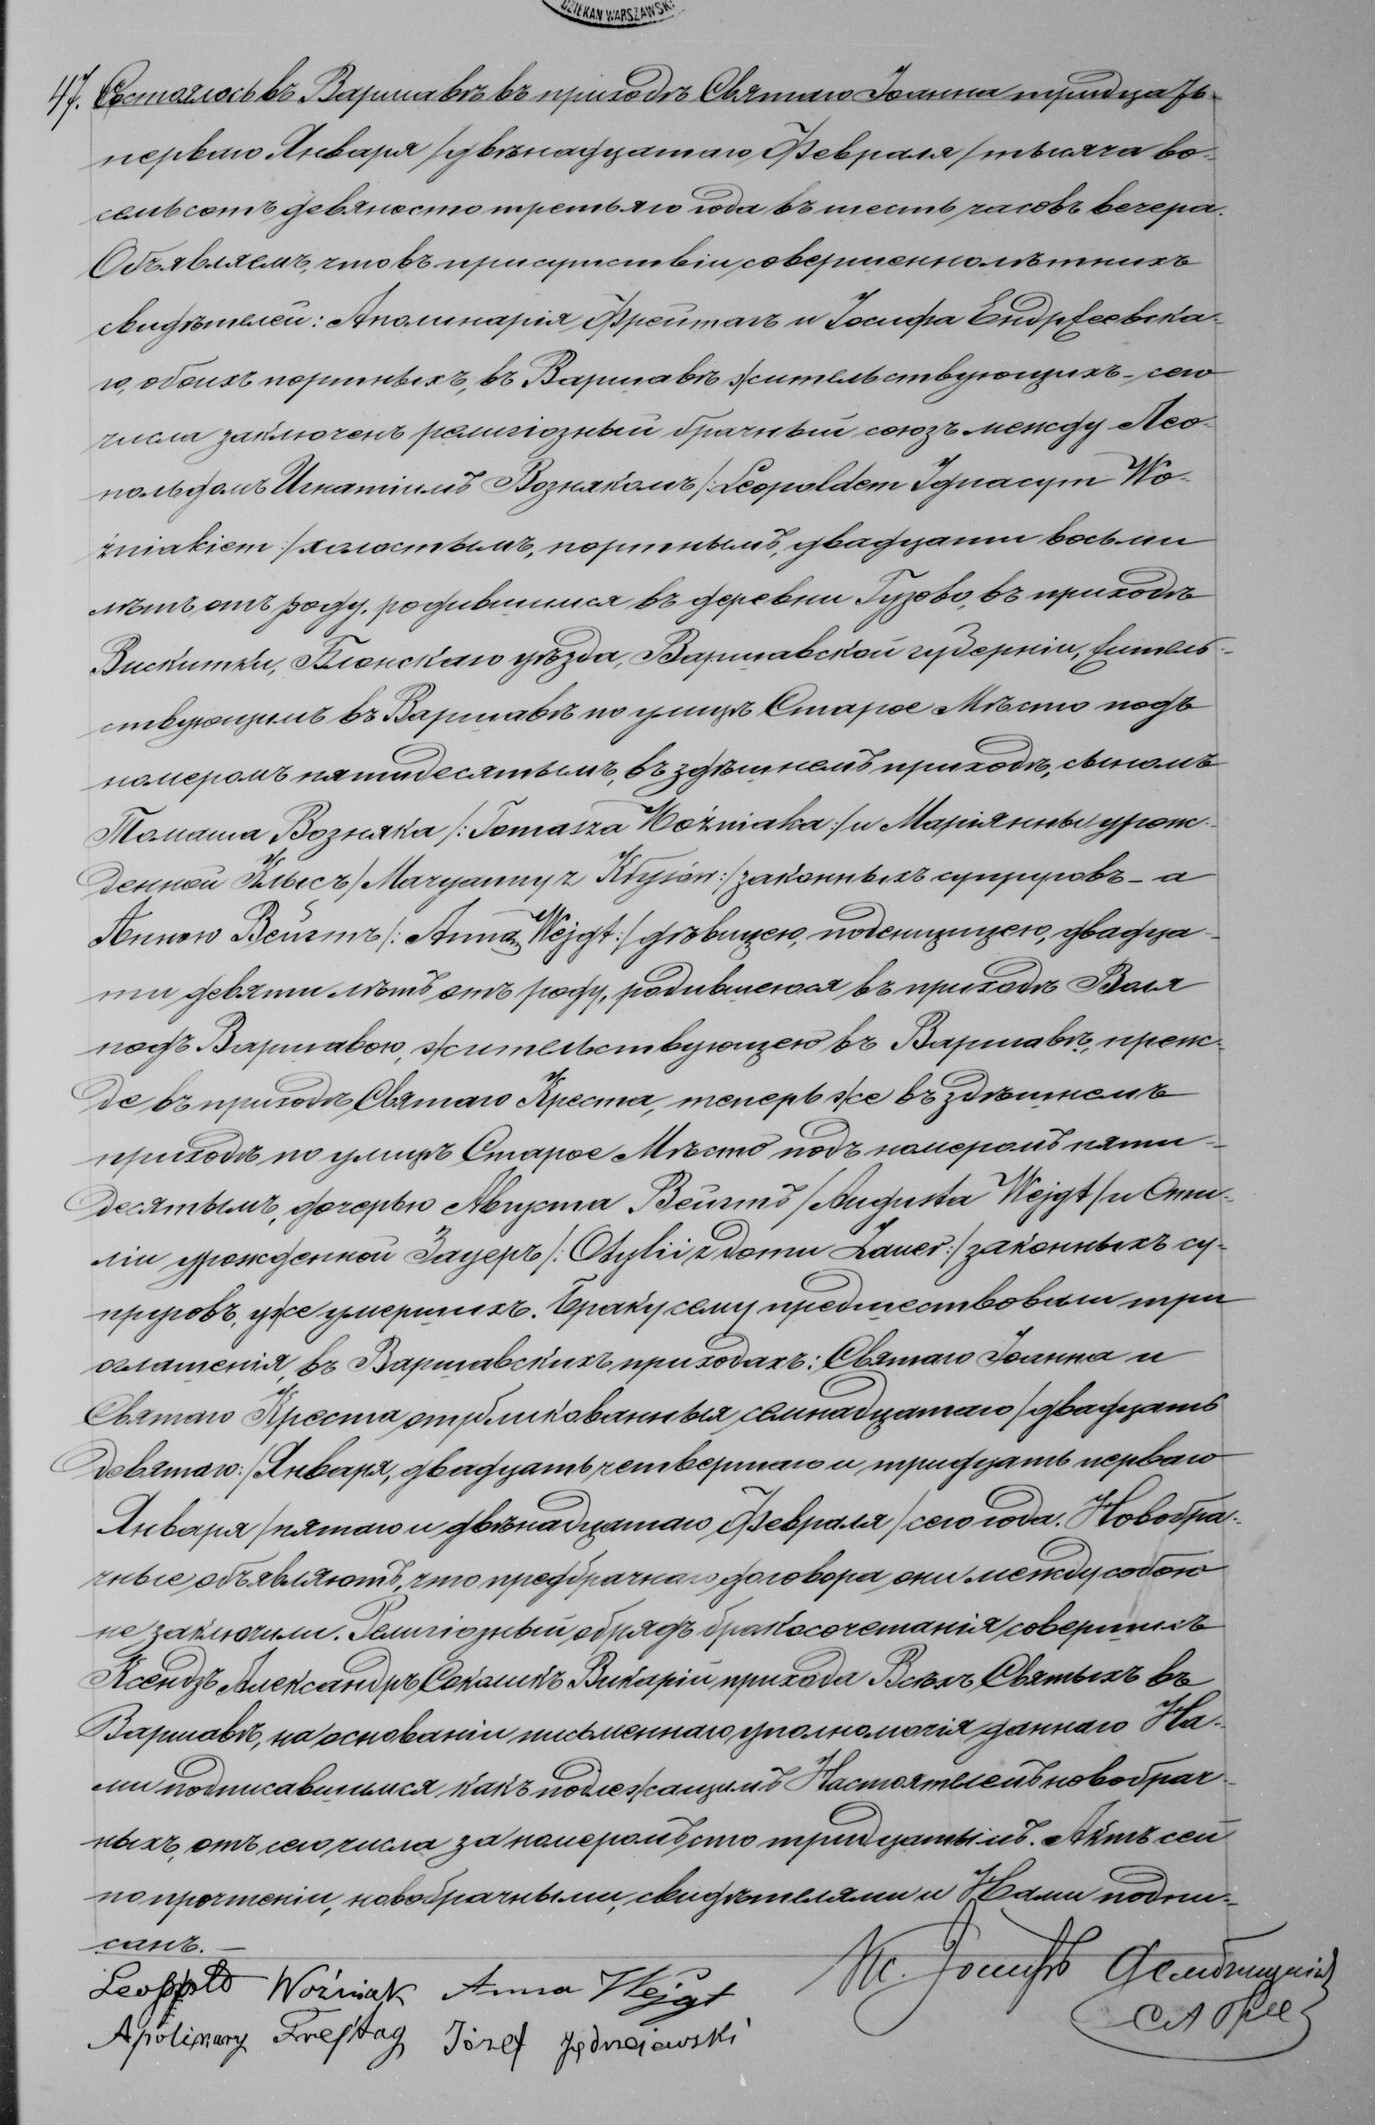 DZIEKAN WARSZAWSKI
47. Состоялось въ Варшавѣ въ приходѣ Святаго Іоанна тридцать
перваго Января /двѣнадцатаго Февраля/ тысяча во-
семьсотъ девяносто третьяго года въ шесть часовъ вечера.
Объявляемъ, что въ присутствіи совершеннолѣтнихъ
свидѣтелей: Аполинарія Фрейтагъ и Іосифа Ендржеевска-
го, обоихъ портныхъ, въ Варшавѣ жительствующихъ – сего
числа заключенъ религіозный брачный союзъ между Лео-
польдомъ Игнатіемъ Возняколъ /:Leopoldem Ignacym Wo-
źniakiem:/ холостымъ, портнымъ, двадцати восьми
лѣтъ отъ роду, родившимся въ деревни Гузово, въ приходѣ
Вискитки, Блонскаго уѣзда, Варшавской губерніи, житель-
ствующимъ въ Варшавѣ по улицѣ Старое Мѣсто подъ
номеромъ пятидесятымъ, въ здѣшнемъ приходѣ, сыномъ
Томаша Возняка /:Tomasza Woźniaka:/ и Маріянны урож-
денной Клысъ /Maryanny z Kłysów:/ законныхъ супруговъ – а
Анною Вейгтъ /:Anną Wejgt:/ дѣвицею, поденщицею, двадца-
ти девяти лѣтъ отъ роду, родившеюся въ приходѣ Воля
подъ Варшавою, жительствующею въ Варшавѣ, преж-
де въ приходѣ Святаго Креста, теперь же въ здѣшнемъ
приходѣ по улицѣ Старое Мѣсто подъ номеромъ пяти-
десятымъ, дочерью Августа Вейгтъ /Augusta Wejgt/ и Оти-
ліи урожденной Зауеръ /:Otylii z domu Zauer:/ законныхъ су-
пруговъ, уже умершихъ. Браку сему предшествовали три
оглашенія, въ Варшавскихъ приходахъ: Святаго Іоанна и
Святаго Креста опубликованныя семнадцатаго /двадцать
девятаго:/ Января, двадцать четвертаго и тридцать перваго
Января /пятаго и двѣнадцатаго Февраля/ сего года. Новобра-
чные объявляютъ, что предбрачнаго договора они между собою
не заключили. Религіозный обрядъ бракосочетанія совершилъ
Ксендзъ Александръ Соколикъ Викарій прихода Всѣхъ Святыхъ въ
Варшавѣ, на основаніи письменнаго уполномочія даннаго На-
ми подписавшимся какъ подлежащимъ Настоятелемъ новобрач-
ныхъ, отъ сего числа за номеромъ сто тридцатымъ. Актъ сей
по прочтеніи, новобрачными, свидѣтелями и Нами подпи-
санъ. –
Leopold Woźniak Anna Wejgt Кс. Іосифъ
Apolinary Frejtag Józef Jędrzejewski